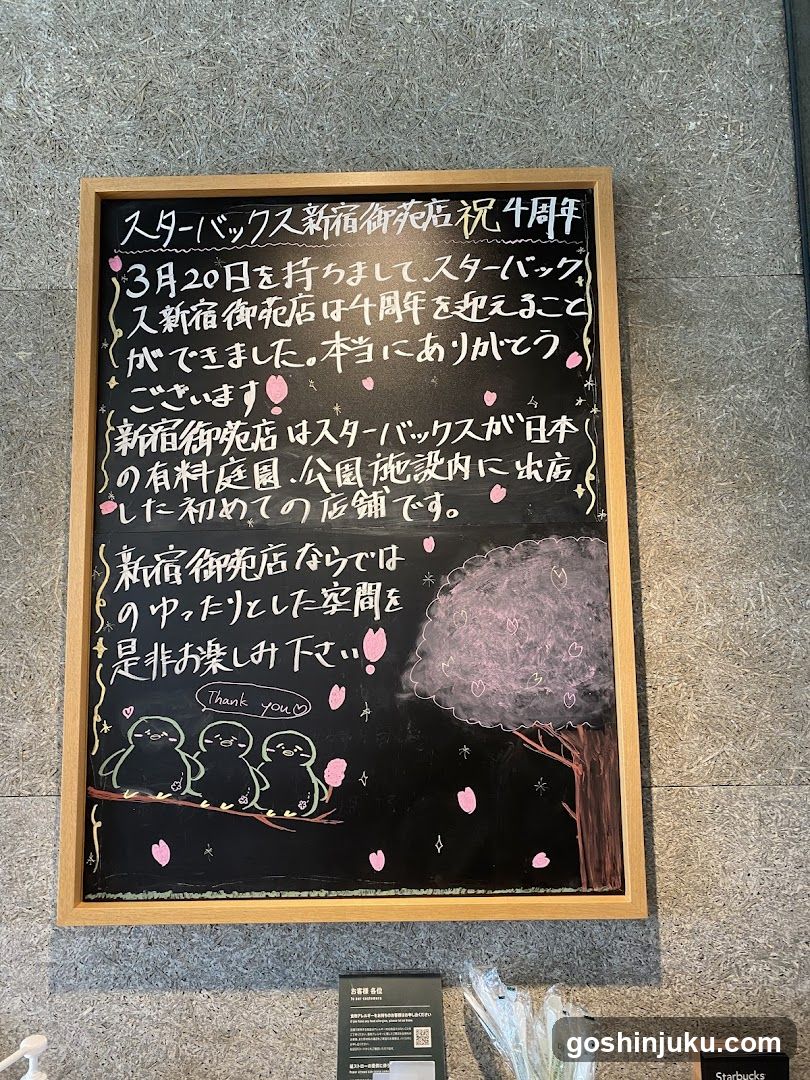 スターバックス新宿御苑店 祝 4周年
3月20日を持ちまして、スターバック
ス新宿御苑店は4周年を迎えること
ができました。本当にありがとう
ございます!
新宿御苑店はスターバックスが日本
の有料庭園・公園施設内に出店
した初めての店舗です。
新宿御苑店ならでは
のゆったりとした空間を
是非お楽しみ下さい!
Thank you
お客様 各位
To our customers
goshinjuku.com
Starbucks